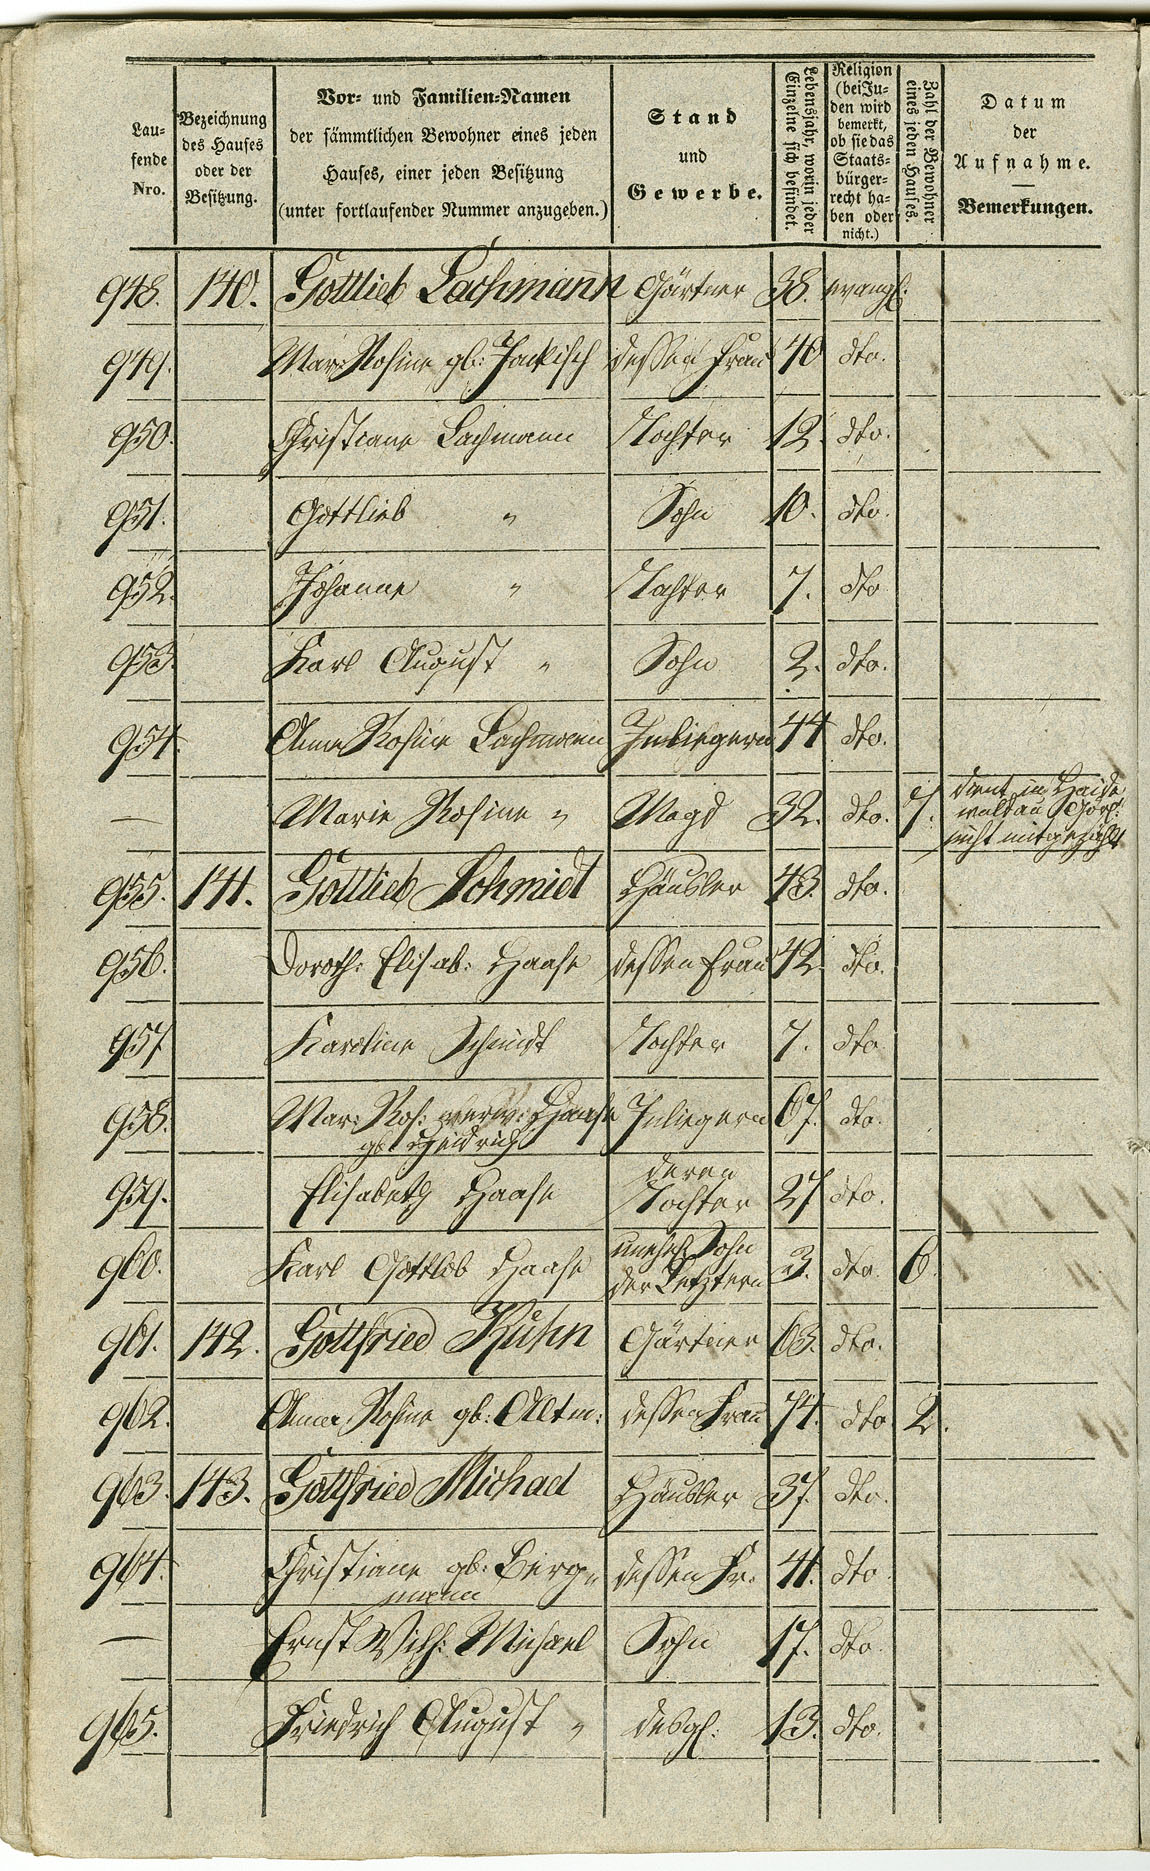 Lau-
fende
Nro.
Bezeichnung
des Hauses
oder der
Besitzung.
Vor- und Familien-Namen
der sämmtlichen Bewohner eines jeden
Hauses, einer jeden Besitzung
(unter fortlaufender Nummer anzugeben.)
Stand
und
Gewerbe.
Lebensjahr, worin jeder
Einzelne sich befindet.
Religion
(bei Ju-
den wird
bemerkt,
ob sie das
Staats-
bürger-
recht ha-
ben oder
nicht.)
Zahl der Bewohner
eines jeden Hauses.
Datum
der
Aufnahme.
Bemerkungen.
948. 140. Gottlieb Lachmann Gärtner 38. evangl:
949. Mar: Rosine gb: Jackisch dessen Frau 40 dto.
950. Christiane Lachmann Tochter 12. dto.
951. Gottlieb " Sohn 10. dto.
952. Johanne " Tochter 7. dto
953. Karl August " Sohn 2. dto.
954. Anna Rosine Lachmann Inliegerin 44 dto.
— Marie Rosine " Magd 32. dto. 7. dient in Haide
waldau Görl:
nicht mitgezählt
955. 141. Gottlieb Schmidt Häusler 43. dto.
956. Doroth: Elisab: Haase dessen Frau 42. dto.
957. Karoline Schmidt Tochter 7. dto.
958. Mar: Ros: verw: Haase Inliegerin 67. dto.
gb: Heidrich
959. Elisabeth Haase deren
Tochter 27 dto.
960. Karl Gottlob Haase unehel. Sohn
der Letztern 3. dto. 6.
961. 142. Gottfried Kuhn Gärtner 63. dto.
962. Anna Rosine gb: Altm: dessen Frau 74. dto 2.
963. 143. Gottfried Michael Häusler 37. dto.
964. Christiane gb: Berg- dessen Fr. 41. dto.
mann
— Ernst Wilh: Michael Sohn 17. dto.
965. Friedrich August " desgl: 13. dto.